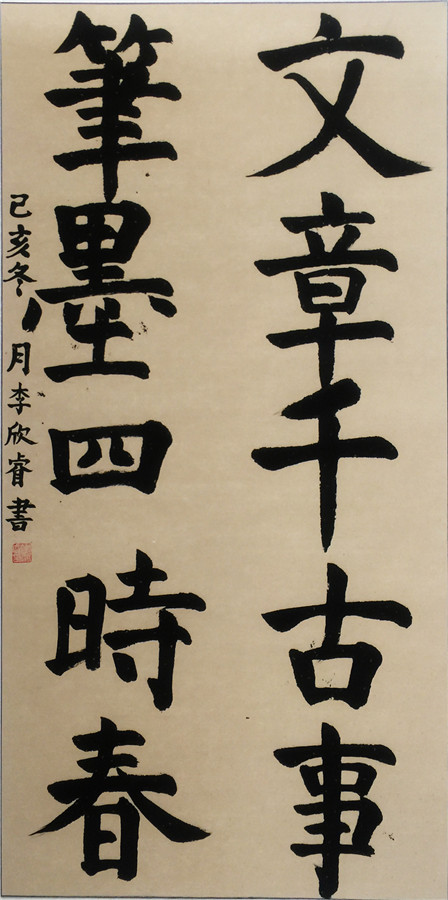 文章千古事
筆墨四時春
己亥冬月李欣睿書